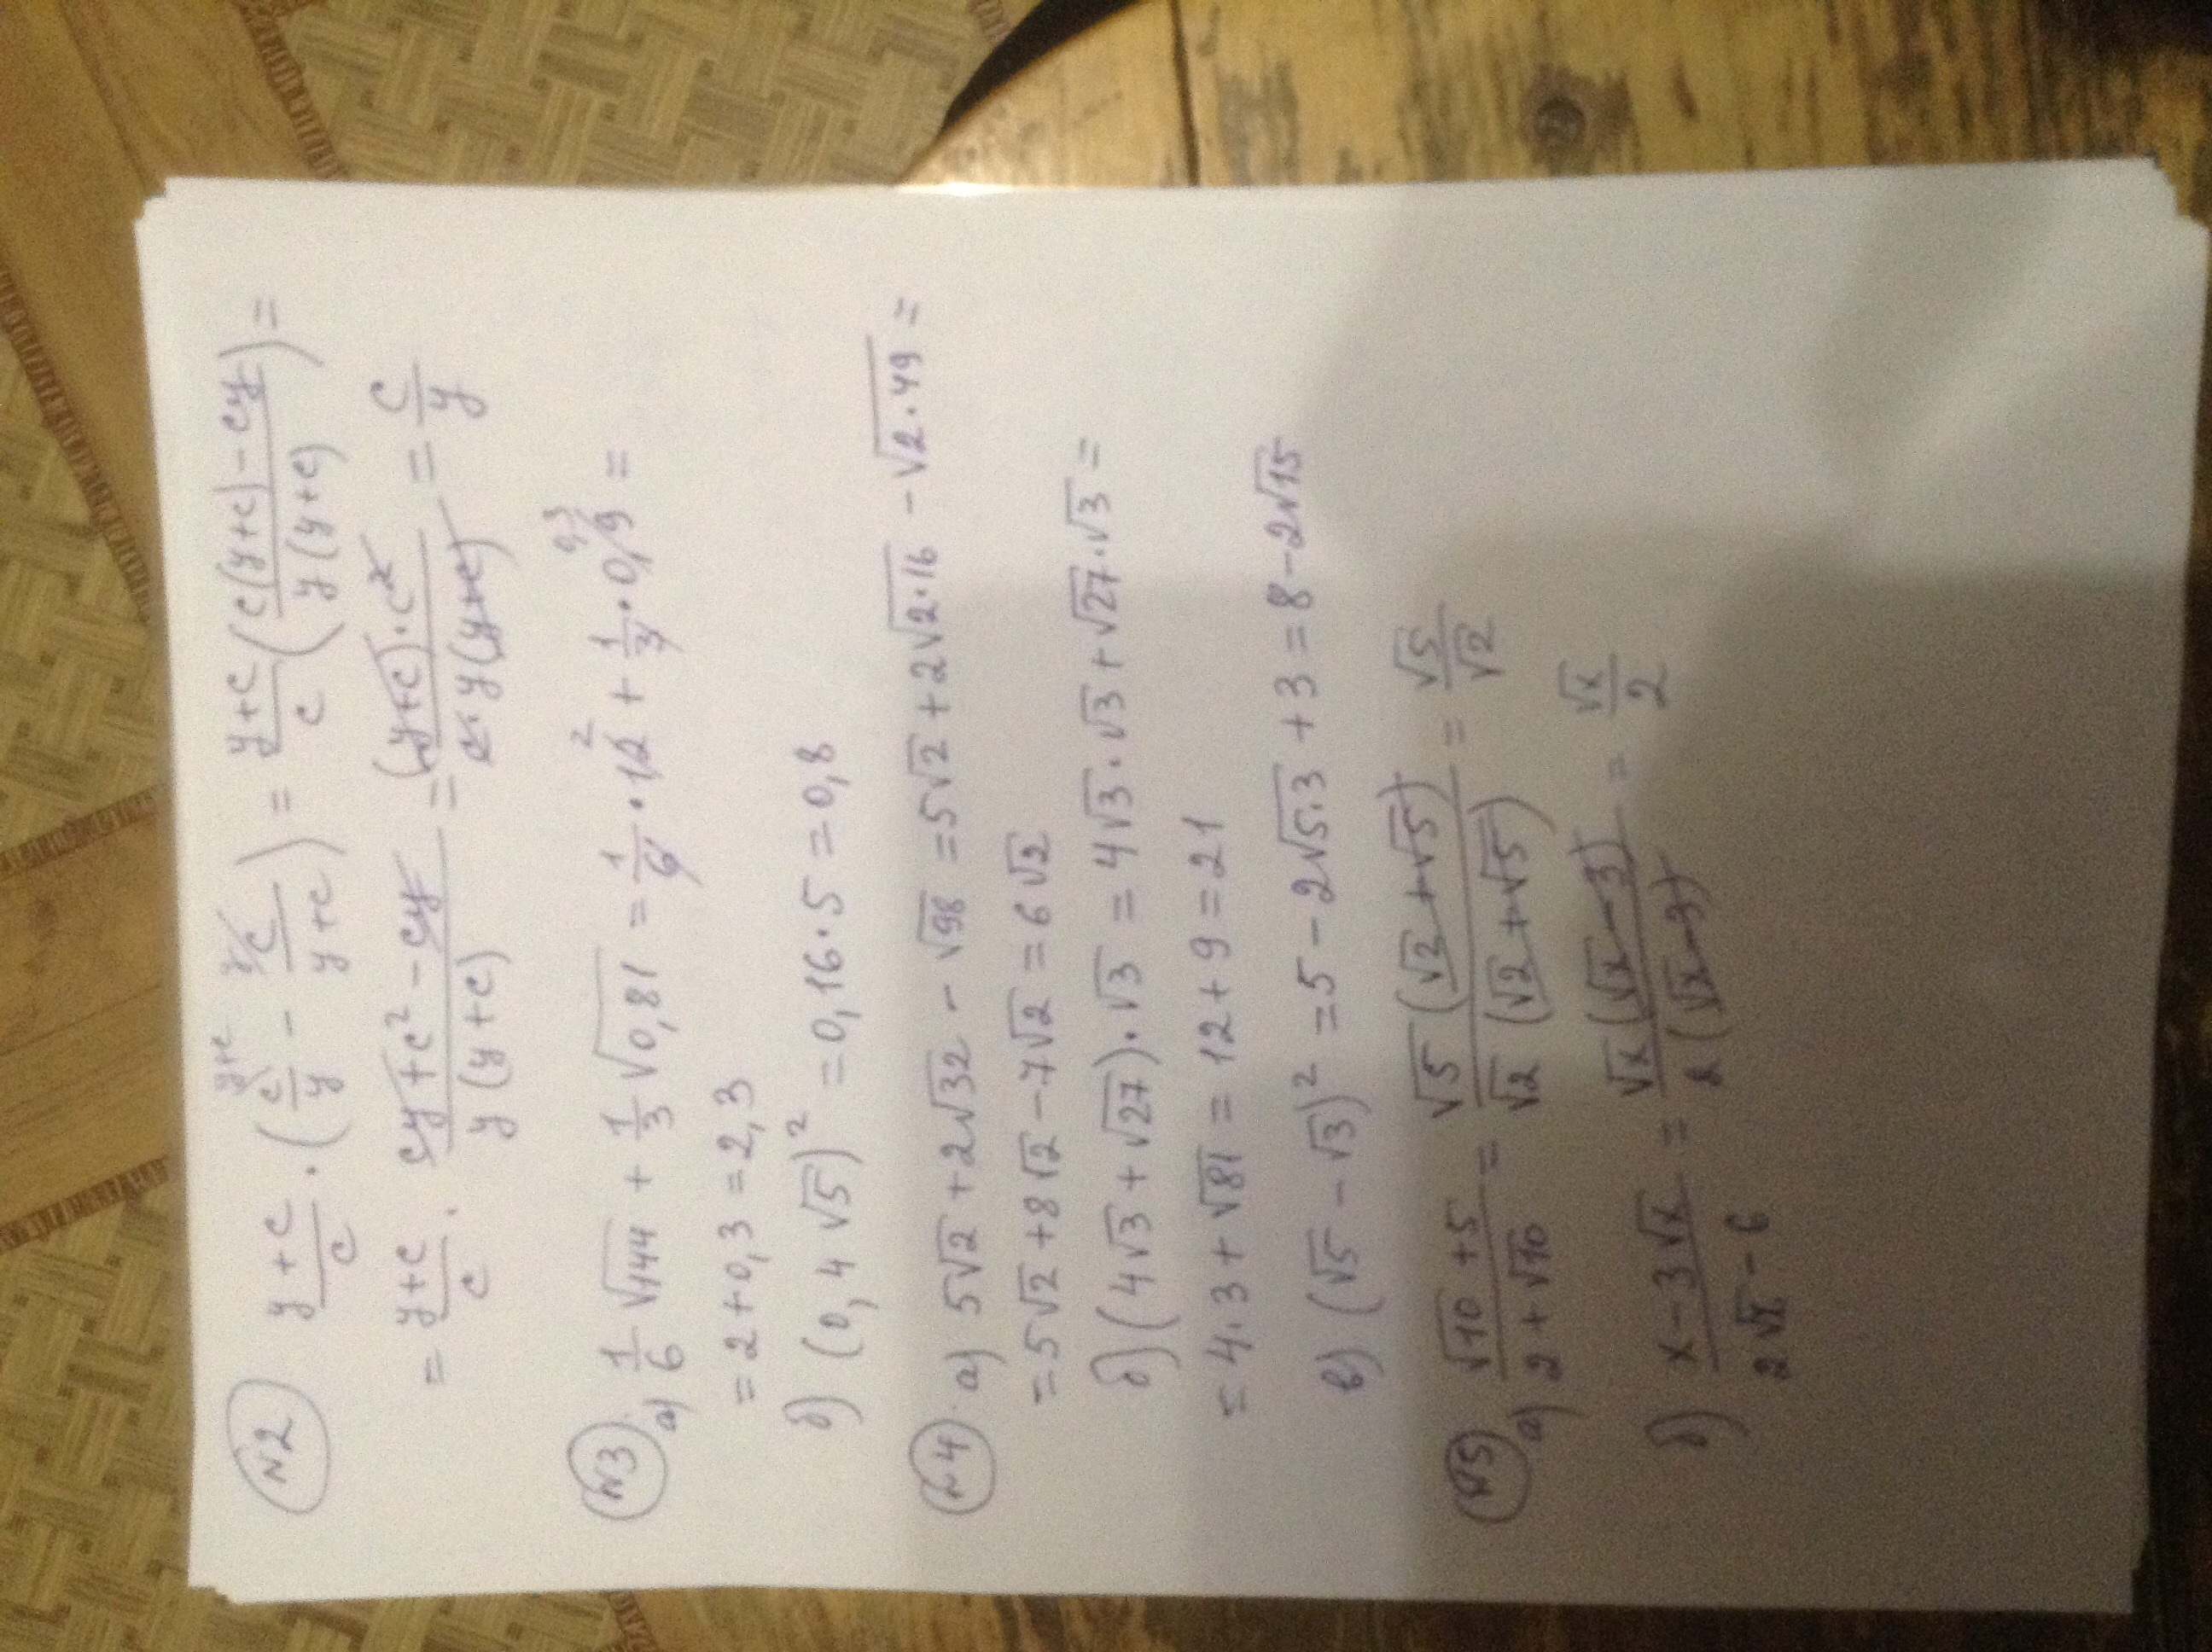 N2 (y+c)/c · (c/y - c/(y+c)) = (y+c)/c ((c(y+c) - cy)/(y(y+c))) =
= (y+c)/c · (cy + c² - cy)/(y(y+c)) = ((y+c)·c²)/(c·y(y+c)) = c/y
N3 а) 1/6 √144 + 1/3 √0,81 = 1/6 · 12 + 1/3 · 0,9 =
= 2 + 0,3 = 2,3
б) (0,4 √5)² = 0,16 · 5 = 0,8
N4 а) 5√2 + 2√32 - √98 = 5√2 + 2√2·16 - √2·49 =
= 5√2 + 8√2 - 7√2 = 6√2
б) (4√3 + √27)·√3 = 4√3·√3 + √27·√3 =
= 4·3 + √81 = 12 + 9 = 21
в) (√5 - √3)² = 5 - 2√5·3 + 3 = 8 - 2√15
N5 а) (√10 + 5)/(2 + √10) = (√5 (√2 + √5))/(√2 (√2 + √5)) = √5/√2
б) (x - 3√x)/(2√x - 6) = (√x (√x - 3))/(2 (√x - 3)) = √x/2